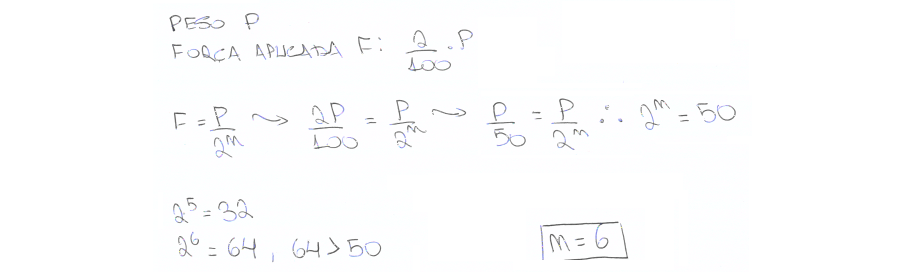 PESO P
FORÇA APLICADA F: 2/100 . P
F = P/2^m ⤳ 2P/100 = P/2^m ⤳ P/50 = P/2^m ∴ 2^m = 50
2^5 = 32
2^6 = 64, 64 > 50
m = 6